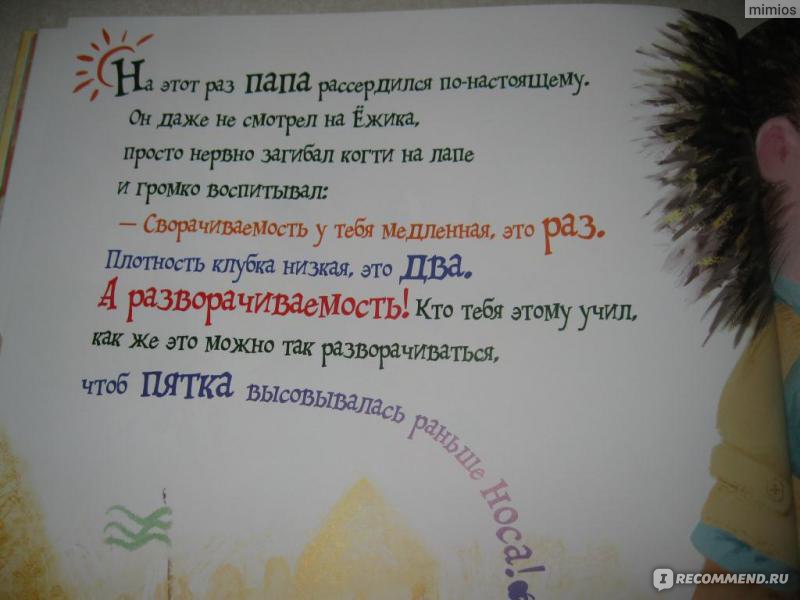 mimios
На этот раз папа рассердился по-настоящему.
Он даже не смотрел на Ёжика,
просто нервно загибал когти на лапе
и громко воспитывал:
— Сворачиваемость у тебя медленная, это раз.
Плотность клубка низкая, это два.
А разворачиваемость! Кто тебя этому учил,
как же это можно так разворачиваться,
чтоб пятка высовывалась раньше носа!
IRECOMMEND.RU